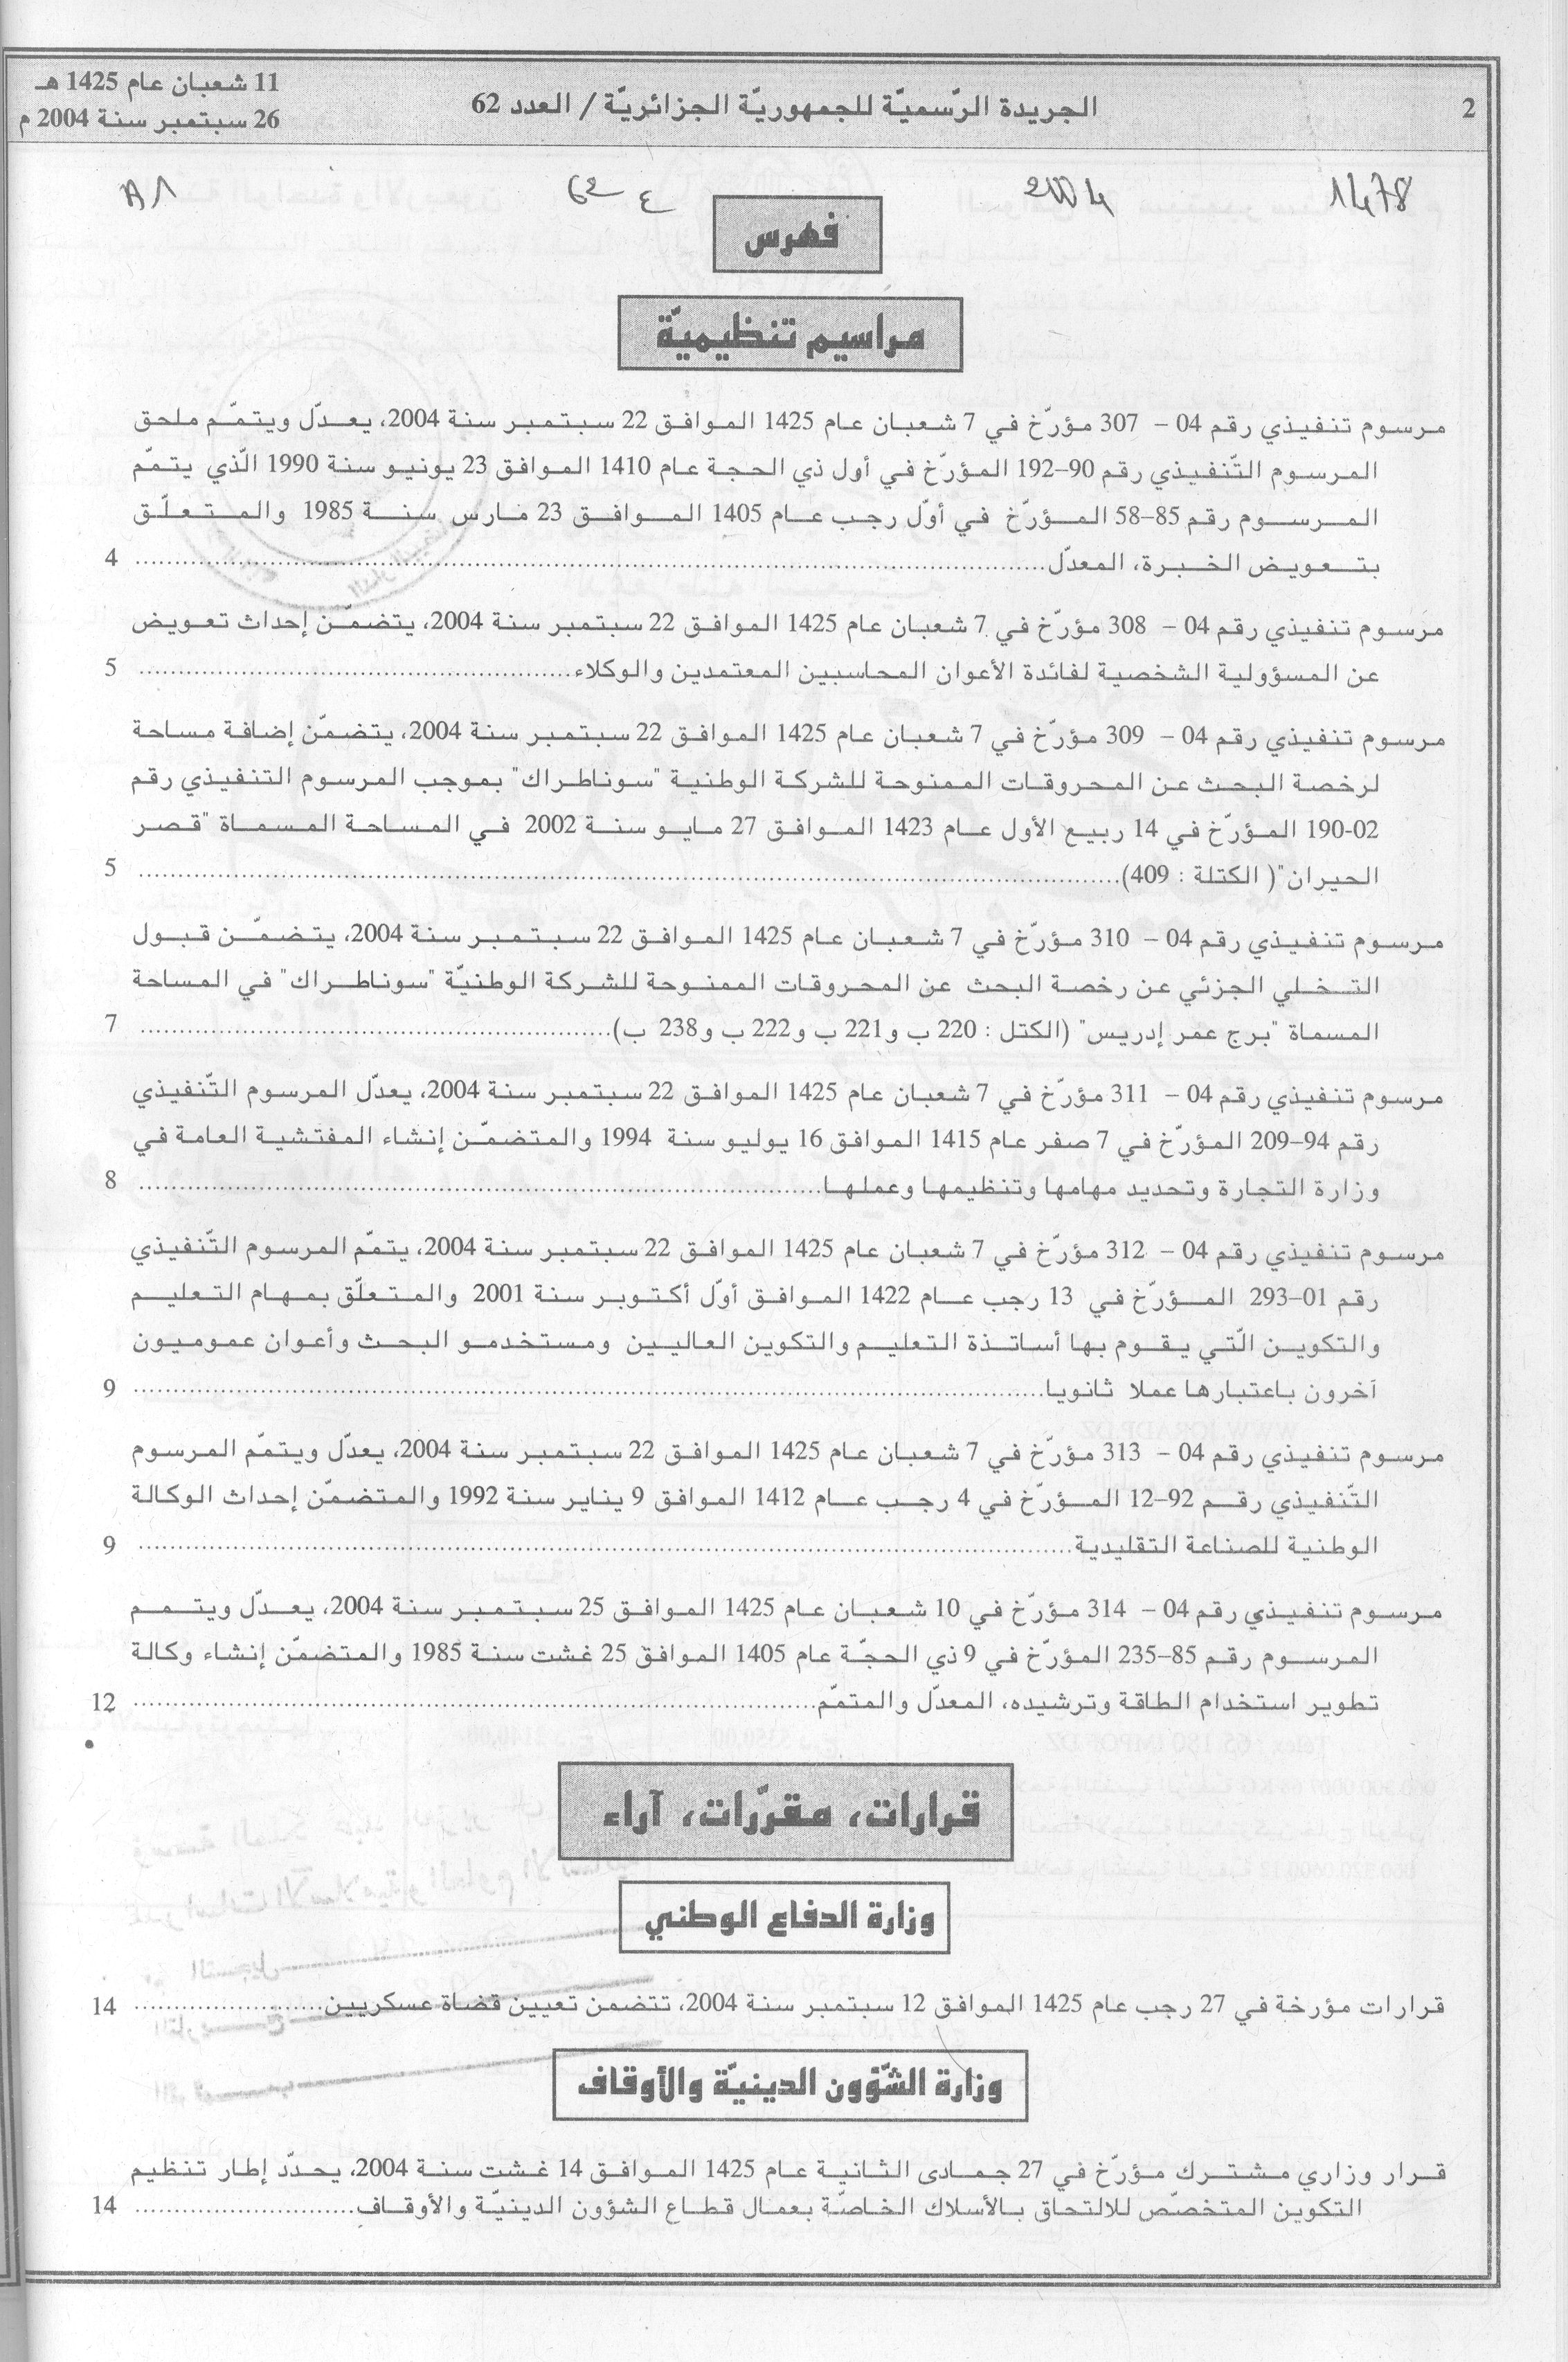 2
الجريدة الرّسميّة للجمهوريّة الجزائريّة / العدد 62
11 شعبان عام 1425 هـ
26 سبتمبر سنة 2004 م
1478
2004
ع 62
A1
فهرس
مراسيم تنظيميّة
مرسوم تنفيذي رقم 04 – 307 مؤرّخ في 7 شعبان عام 1425 الموافق 22 سبتمبر سنة 2004، يعدّل ويتمّم ملحق
المرسوم التّنفيذي رقم 90–192 المؤرّخ في أول ذي الحجة عام 1410 الموافق 23 يونيو سنة 1990 الّذي يتمّم
المرسوم رقم 85–58 المؤرّخ في أوّل رجب عام 1405 الموافق 23 مارس سنة 1985 والمتعلّق
بتعويض الخبرة، المعدّل........................ 4
مرسوم تنفيذي رقم 04 – 308 مؤرّخ في 7 شعبان عام 1425 الموافق 22 سبتمبر سنة 2004، يتضمّن إحداث تعويض
عن المسؤولية الشخصية لفائدة الأعوان المحاسبين المعتمدين والوكلاء........................ 5
مرسوم تنفيذي رقم 04 – 309 مؤرّخ في 7 شعبان عام 1425 الموافق 22 سبتمبر سنة 2004، يتضمّن إضافة مساحة
لرخصة البحث عن المحروقات الممنوحة للشركة الوطنية "سوناطراك" بموجب المرسوم التنفيذي رقم
02-190 المؤرّخ في 14 ربيع الأول عام 1423 الموافق 27 مايو سنة 2002 في المساحة المسماة "قصر
الحيران" ( الكتلة : 409)........................ 5
مرسوم تنفيذي رقم 04 – 310 مؤرّخ في 7 شعبان عام 1425 الموافق 22 سبتمبر سنة 2004، يتضمّن قبول
التخلي الجزئي عن رخصة البحث عن المحروقات الممنوحة للشركة الوطنيّة "سوناطراك" في المساحة
المسماة "برج عمر إدريس" (الكتل : 220 ب و221 ب و222 ب و238 ب)........................ 7
مرسوم تنفيذي رقم 04 – 311 مؤرّخ في 7 شعبان عام 1425 الموافق 22 سبتمبر سنة 2004، يعدّل المرسوم التّنفيذي
رقم 94–209 المؤرّخ في 7 صفر عام 1415 الموافق 16 يوليو سنة 1994 والمتضمّن إنشاء المفتشية العامة في
وزارة التجارة وتحديد مهامها وتنظيمها وعملها........................ 8
مرسوم تنفيذي رقم 04 – 312 مؤرّخ في 7 شعبان عام 1425 الموافق 22 سبتمبر سنة 2004، يتمّم المرسوم التّنفيذي
رقم 01–293 المؤرّخ في 13 رجب عام 1422 الموافق أوّل أكتوبر سنة 2001 والمتعلّق بمهام التعليم
والتكوين الّتي يقوم بها أساتذة التعليم والتكوين العاليين ومستخدمو البحث وأعوان عموميون
آخرون باعتبارها عملا ثانويا........................ 9
مرسوم تنفيذي رقم 04 – 313 مؤرّخ في 7 شعبان عام 1425 الموافق 22 سبتمبر سنة 2004، يعدّل ويتمّم المرسوم
التّنفيذي رقم 92–12 المؤرّخ في 4 رجب عام 1412 الموافق 9 يناير سنة 1992 والمتضمّن إحداث الوكالة
الوطنية للصناعة التقليدية........................ 9
مرسوم تنفيذي رقم 04 – 314 مؤرّخ في 10 شعبان عام 1425 الموافق 25 سبتمبر سنة 2004، يعدّل ويتمم
المرسوم رقم 85–235 المؤرّخ في 9 ذي الحجّة عام 1405 الموافق 25 غشت سنة 1985 والمتضمّن إنشاء وكالة
تطوير استخدام الطاقة وترشيده، المعدّل والمتمّم........................ 12
قرارات، مقرّرات، آراء
وزارة الدفاع الوطني
قرارات مؤرخة في 27 رجب عام 1425 الموافق 12 سبتمبر سنة 2004، تتضمن تعيين قضاة عسكريين........................ 14
وزارة الشّؤون الدينيّة والأوقاف
قرار وزاري مشترك مؤرّخ في 27 جمادى الثانية عام 1425 الموافق 14 غشت سنة 2004، يحدّد إطار تنظيم
التكوين المتخصّص للالتحاق بالأسلاك الخاصّة بعمال قطاع الشؤون الدينيّة والأوقاف........................ 14